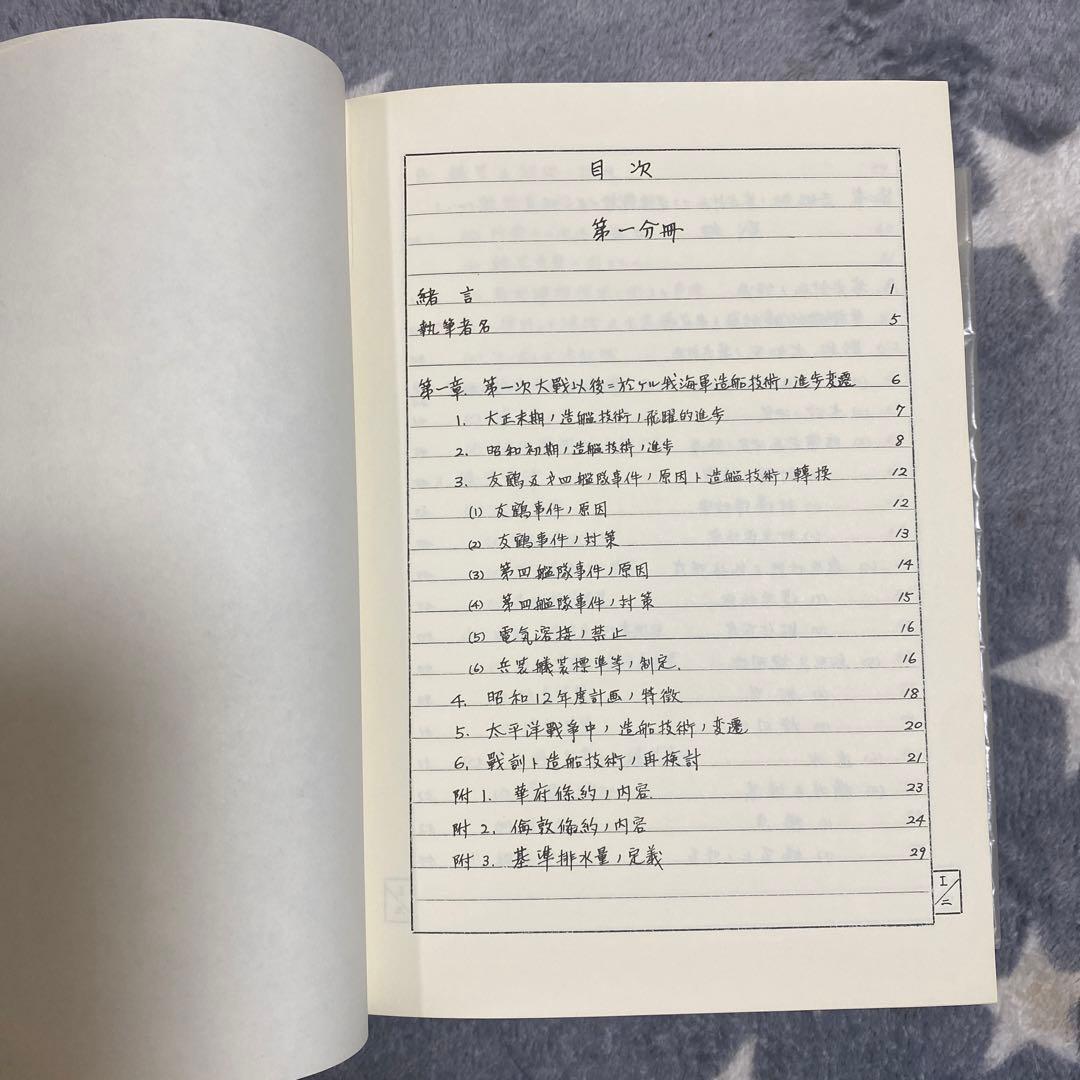 目次
第一分冊
緒言 1
執筆者名 5
第一章 第一次大戰以後ニ於ケル我海軍造船技術ノ進歩変遷 6
1. 大正末期ノ造艦技術ノ飛躍的進歩 7
2. 昭和初期ノ造艦技術ノ進歩 8
3. 友鶴及才四艦隊事件ノ原因ト造艦技術ノ轉換 12
(1) 友鶴事件ノ原因 12
(2) 友鶴事件ノ対策 13
(3) 第四艦隊事件ノ原因 14
(4) 第四艦隊事件ノ対策 15
(5) 電気溶接ノ禁止 16
(6) 兵装艤装標準等ノ制定. 16
4. 昭和12年度計画ノ特徴 18
5. 太平洋戰争中ノ造船技術ノ変遷 20
6. 戰訓ト造船技術ノ再検討 21
附1. 華府條約ノ内容 23
附2. 倫敦條約ノ内容 24
附3. 基準排水量ノ定義 29
I/二